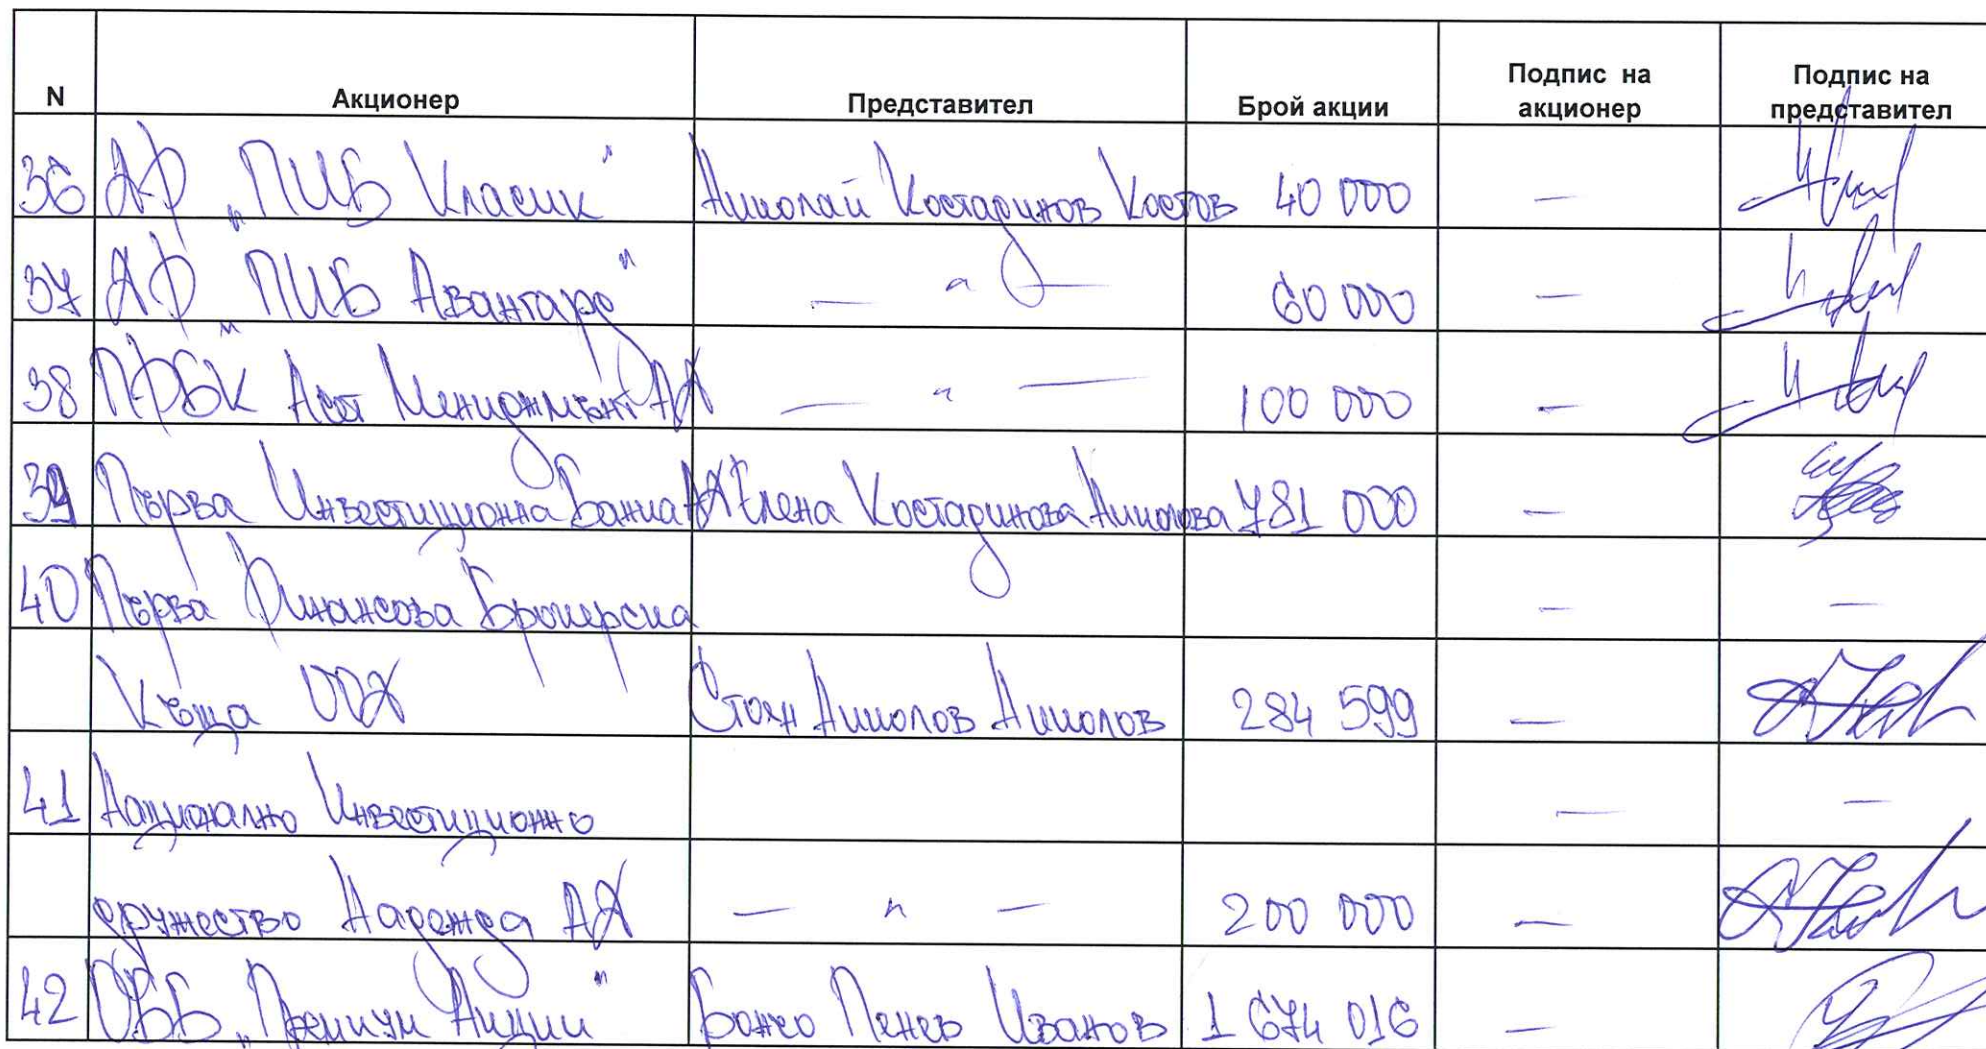 N Акционер Представител Брой акции Подпис на акционер Подпис на представител
36 ДФ „ПИБ Класик" Николай Костадинов Костов 40 000 —
37 ДФ „ПИБ Авангард" — " — 60 000 —
38 ПФБК Асет Мениджмънт АД — " — 100 000 —
39 Първа Инвестиционна Банка АД Елена Костадинова Николова 781 000 —
40 Първа Финансова Брокерска — —
Къща ООД Стоян Николов Николов 284 599 —
41 Национално Инвестиционно — —
дружество Надежда АД — " — 200 000 —
42 ОББ „Премиум Акции" Пенев Иванов 1 674 016 —